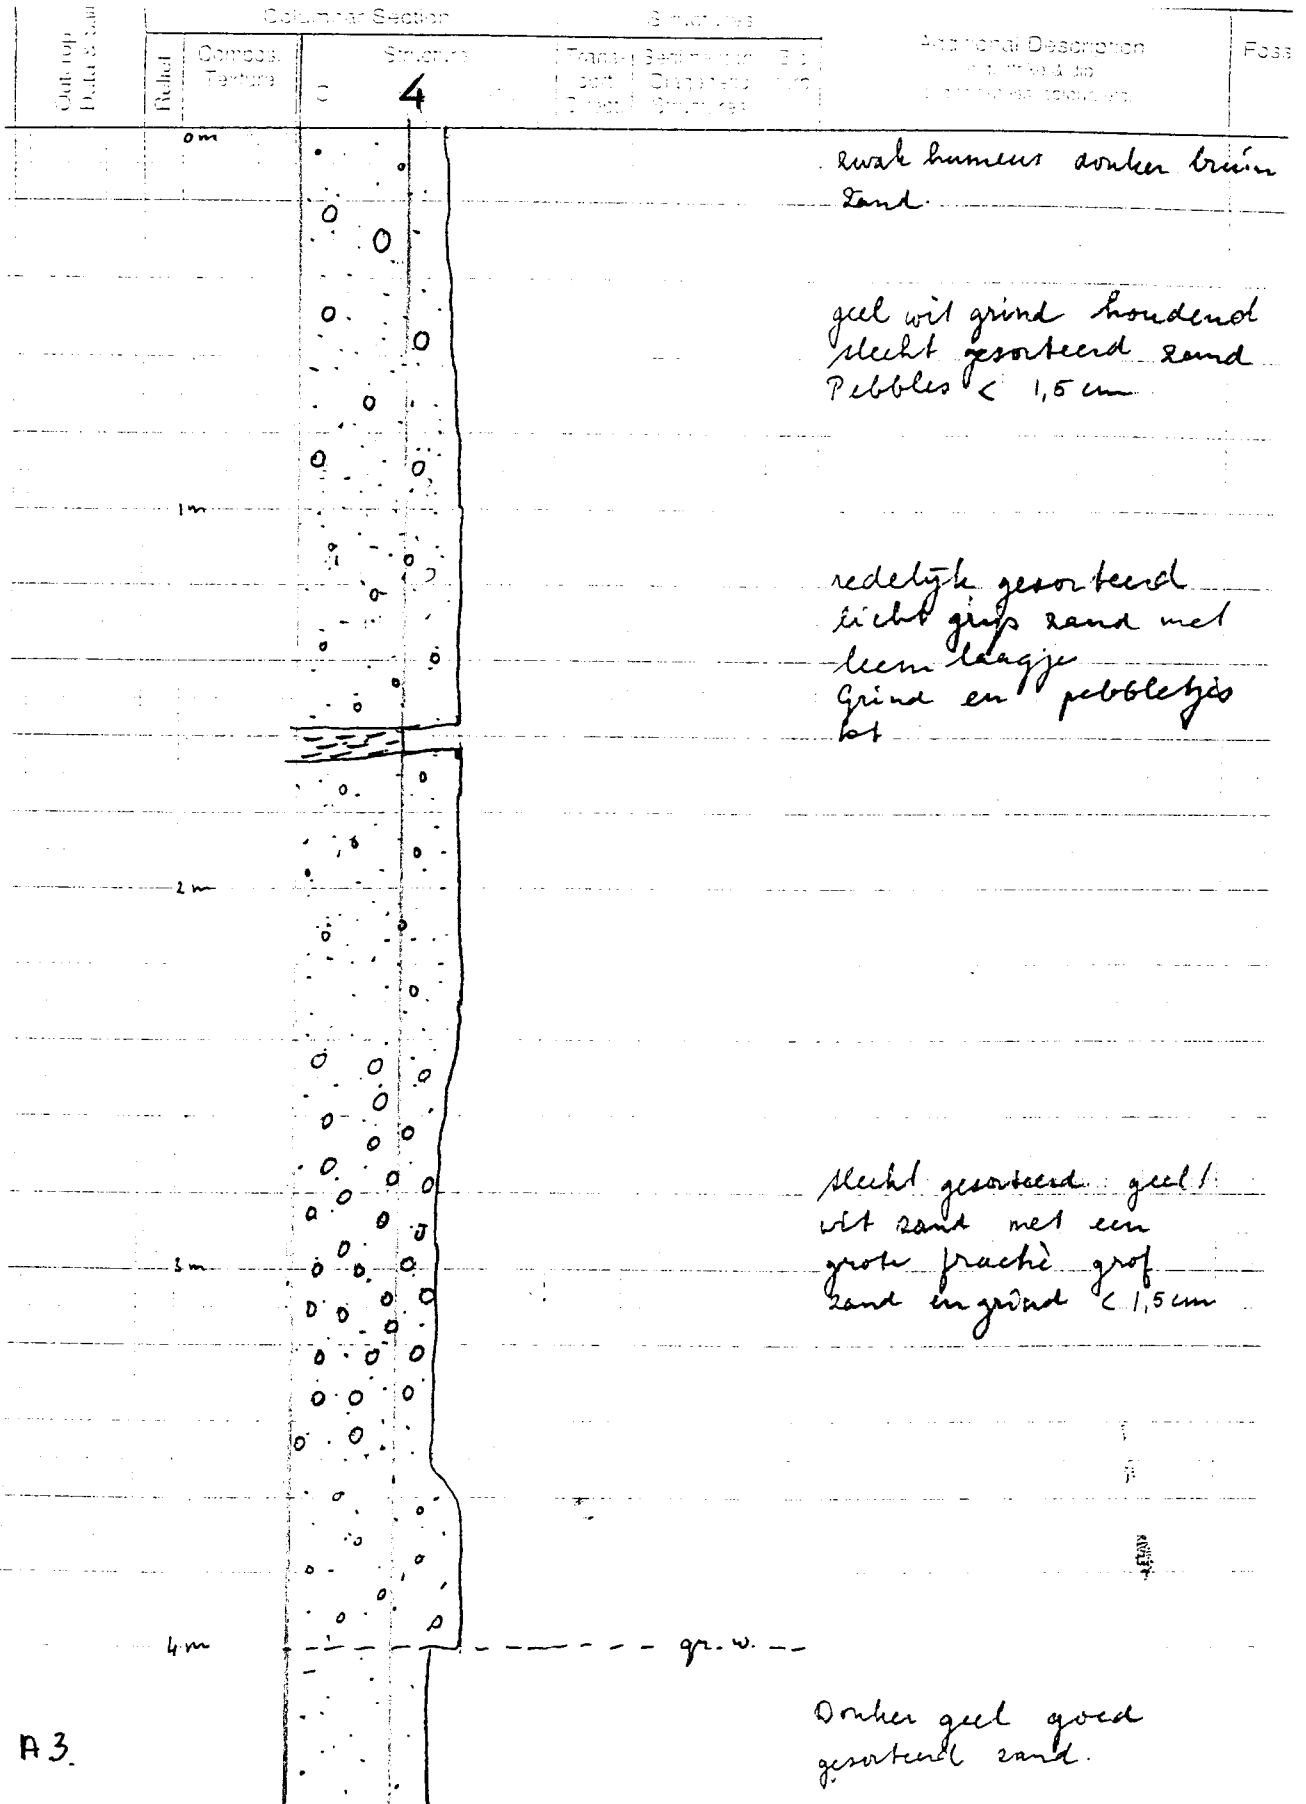 Columnar Section
Structures
Outcrop
Relief
Compos.
Texture
Structure
4
Additional Description
Foss
0m
zwak humeus donker bruin
zand.
geel wit grind houdend
slecht gesorteerd zand
Pebbles < 1,5 cm
1m
redelijk gesorteerd
licht grijs zand met
leem laagje
Grind en pebbletjes
2m
slecht gesorteerd geel/
wit zand met een
grote fractie grof
zand en grind < 1,5 cm
3m
4m
gr.w.
Donker geel goed
gesorteerd zand.
A3.